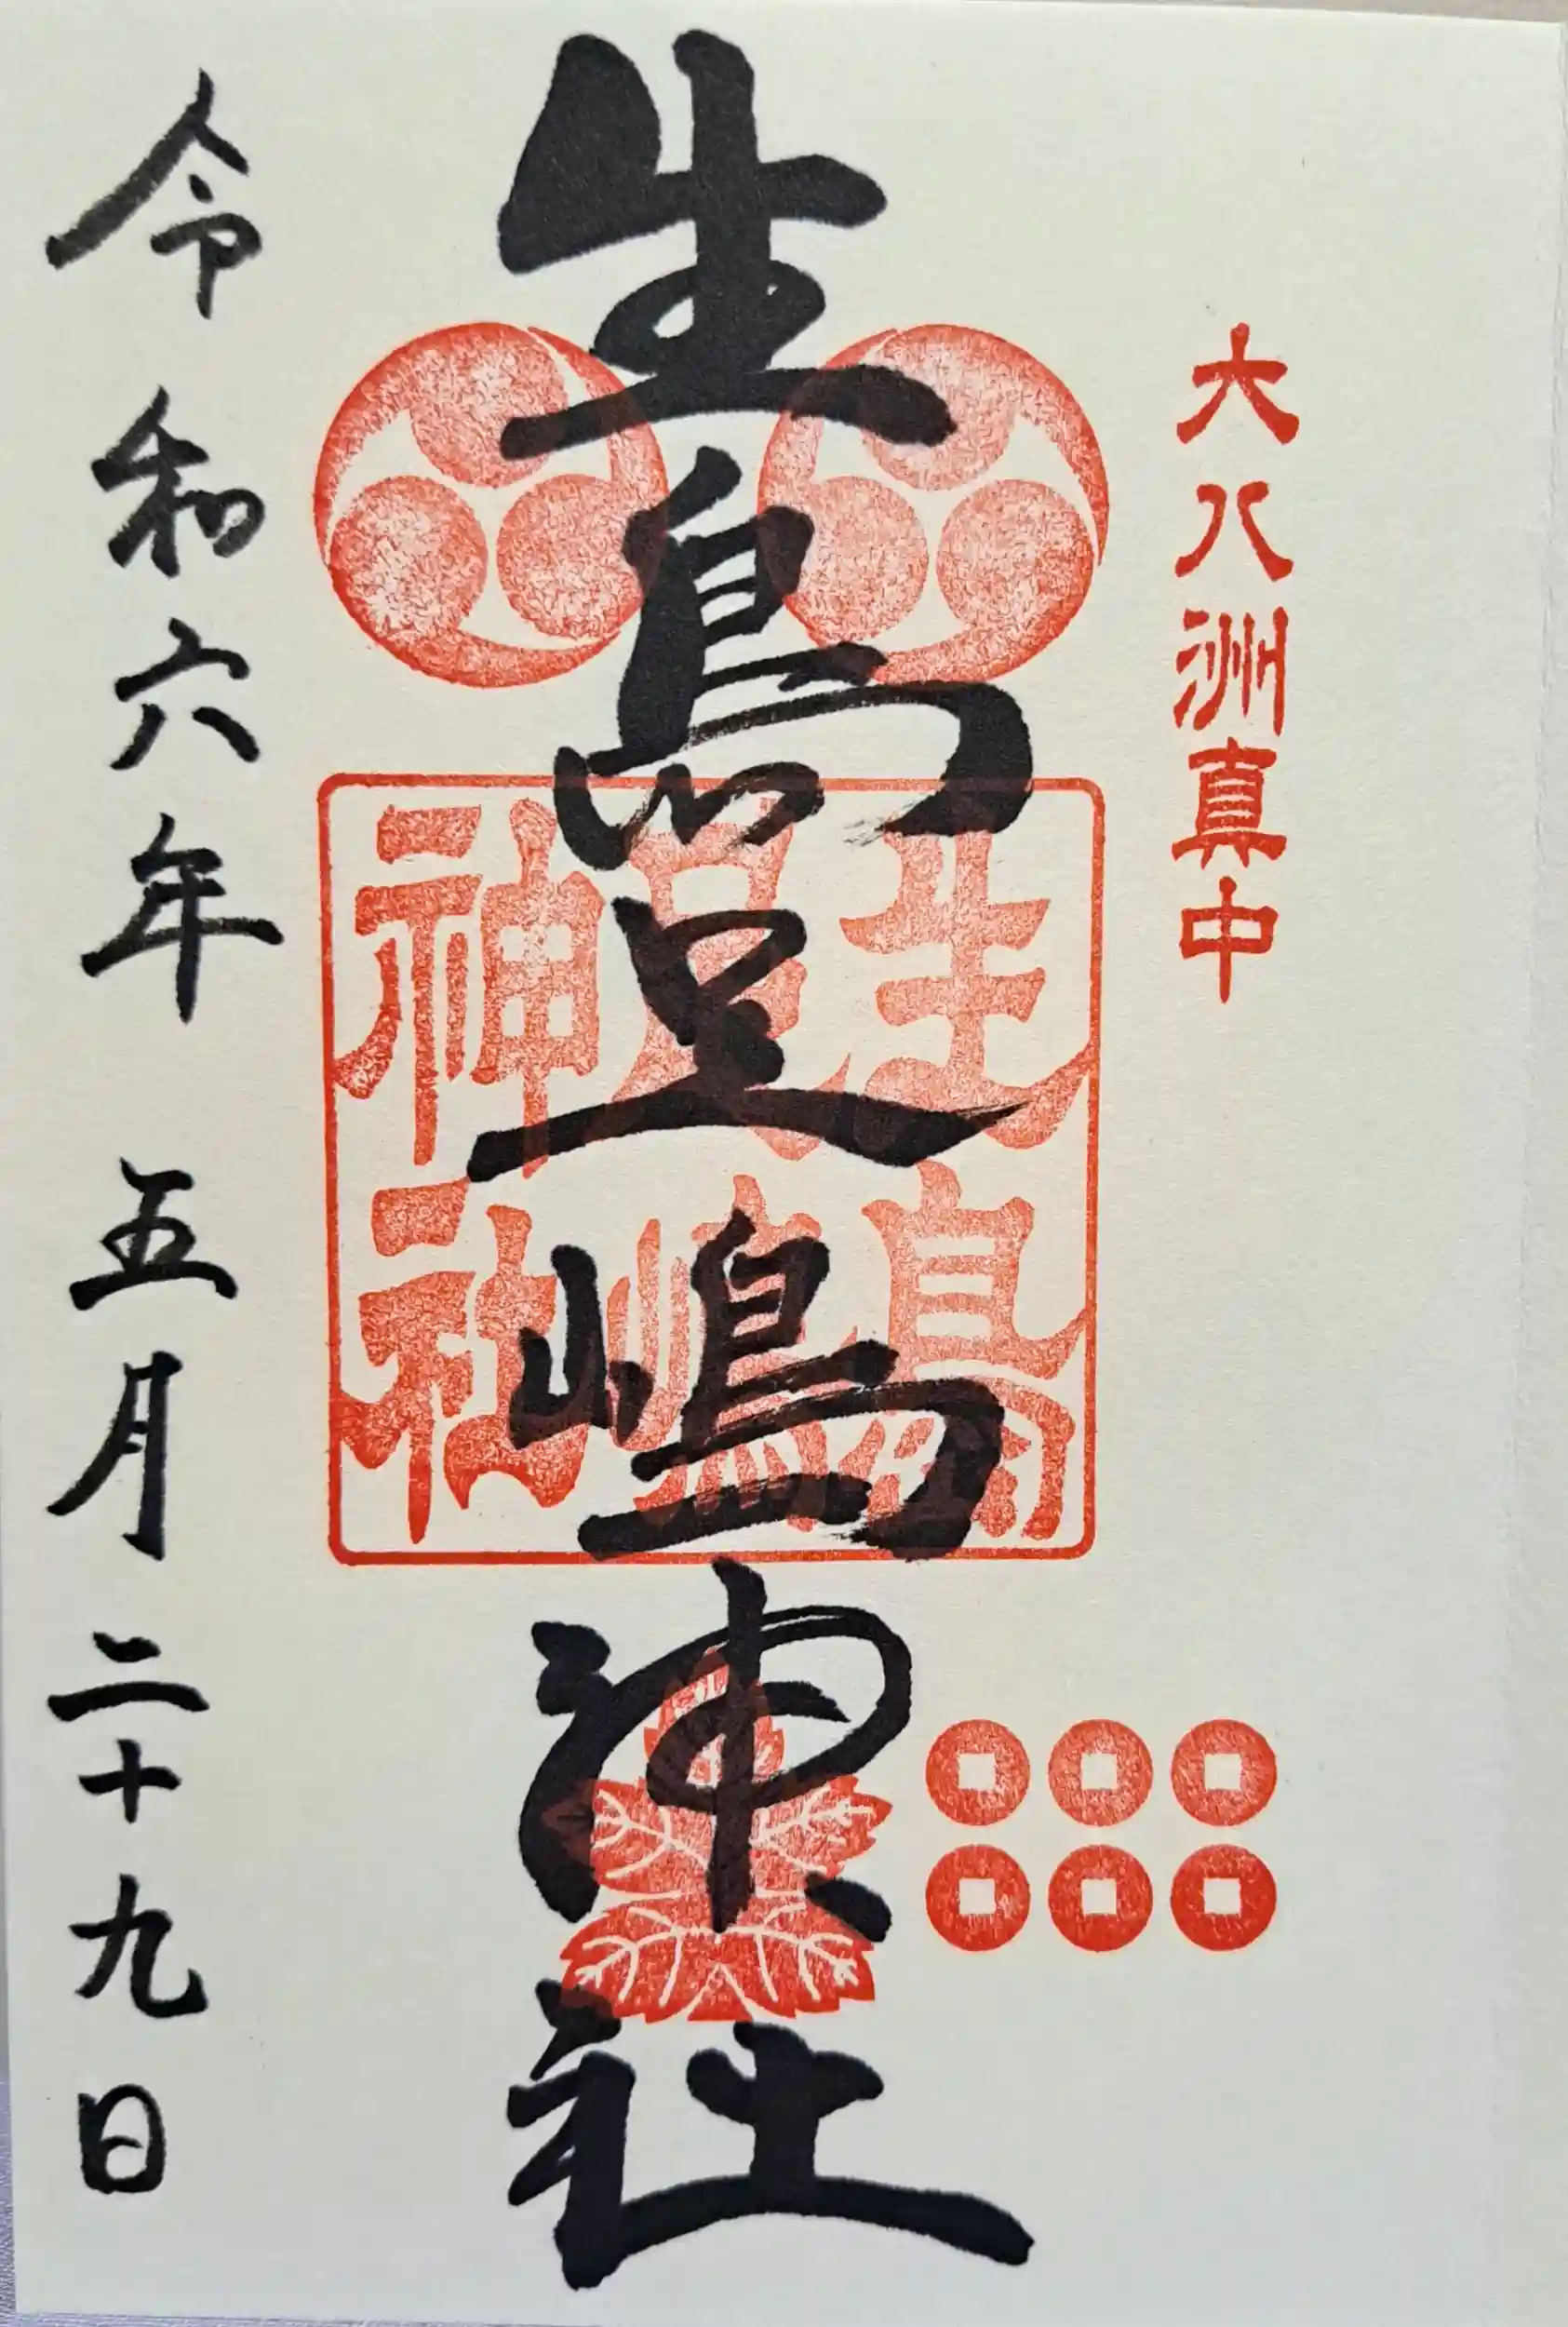 大八洲真中
生島足嶋神社
生島
足嶋
神社
令和六年五月二十九日